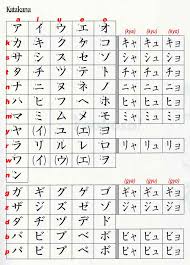 Katakana
a i u e o (kya) (kyu) (kyo)
ア イ ウ エ オ
k カ キ ク ケ コ キャ キュ キョ
s サ シ ス セ ソ シャ シュ ショ
t タ チ ツ テ ト チャ チュ チョ
n ナ ニ ヌ ネ ノ ニャ ニュ ニョ
h ハ ヒ フ ヘ ホ ヒャ ヒュ ヒョ
m マ ミ ム メ モ ミャ ミュ ミョ
y ヤ (イ) ユ (エ) ヨ
r ラ リ ル レ ロ リャ リュ リョ
w ワ (イ) (ウ) (エ) ヲ
n ン
(gya) (gyu) (gyo)
g ガ ギ グ ゲ ゴ ギャ ギュ ギョ
z ザ ジ ズ ゼ ゾ ジャ ジュ ジョ
d ダ ヂ ヅ デ ド
b バ ビ ブ ベ ボ ビャ ビュ ビョ
p パ ピ プ ペ ポ ピャ ピュ ピョ